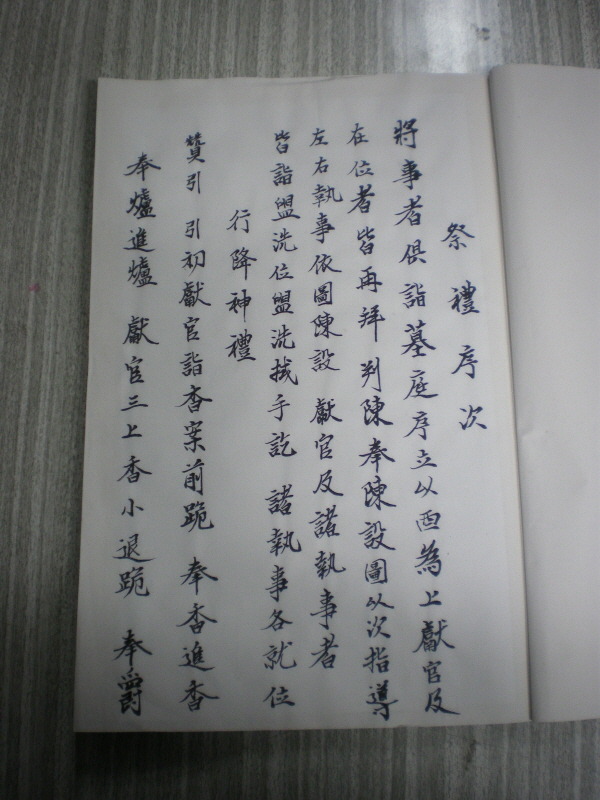 祭禮序次
將事者俱詣墓庭序立以西為上獻官及
在位者皆再拜 判陳奉陳設圖以次指導
左右執事依圖陳設 獻官及諸執事者
皆詣盥洗位盥洗拭手訖 諸執事各就位
行降神禮
贊引 引初獻官詣香案前跪 奉香進香
奉爐進爐 獻官三上香小退跪 奉爵